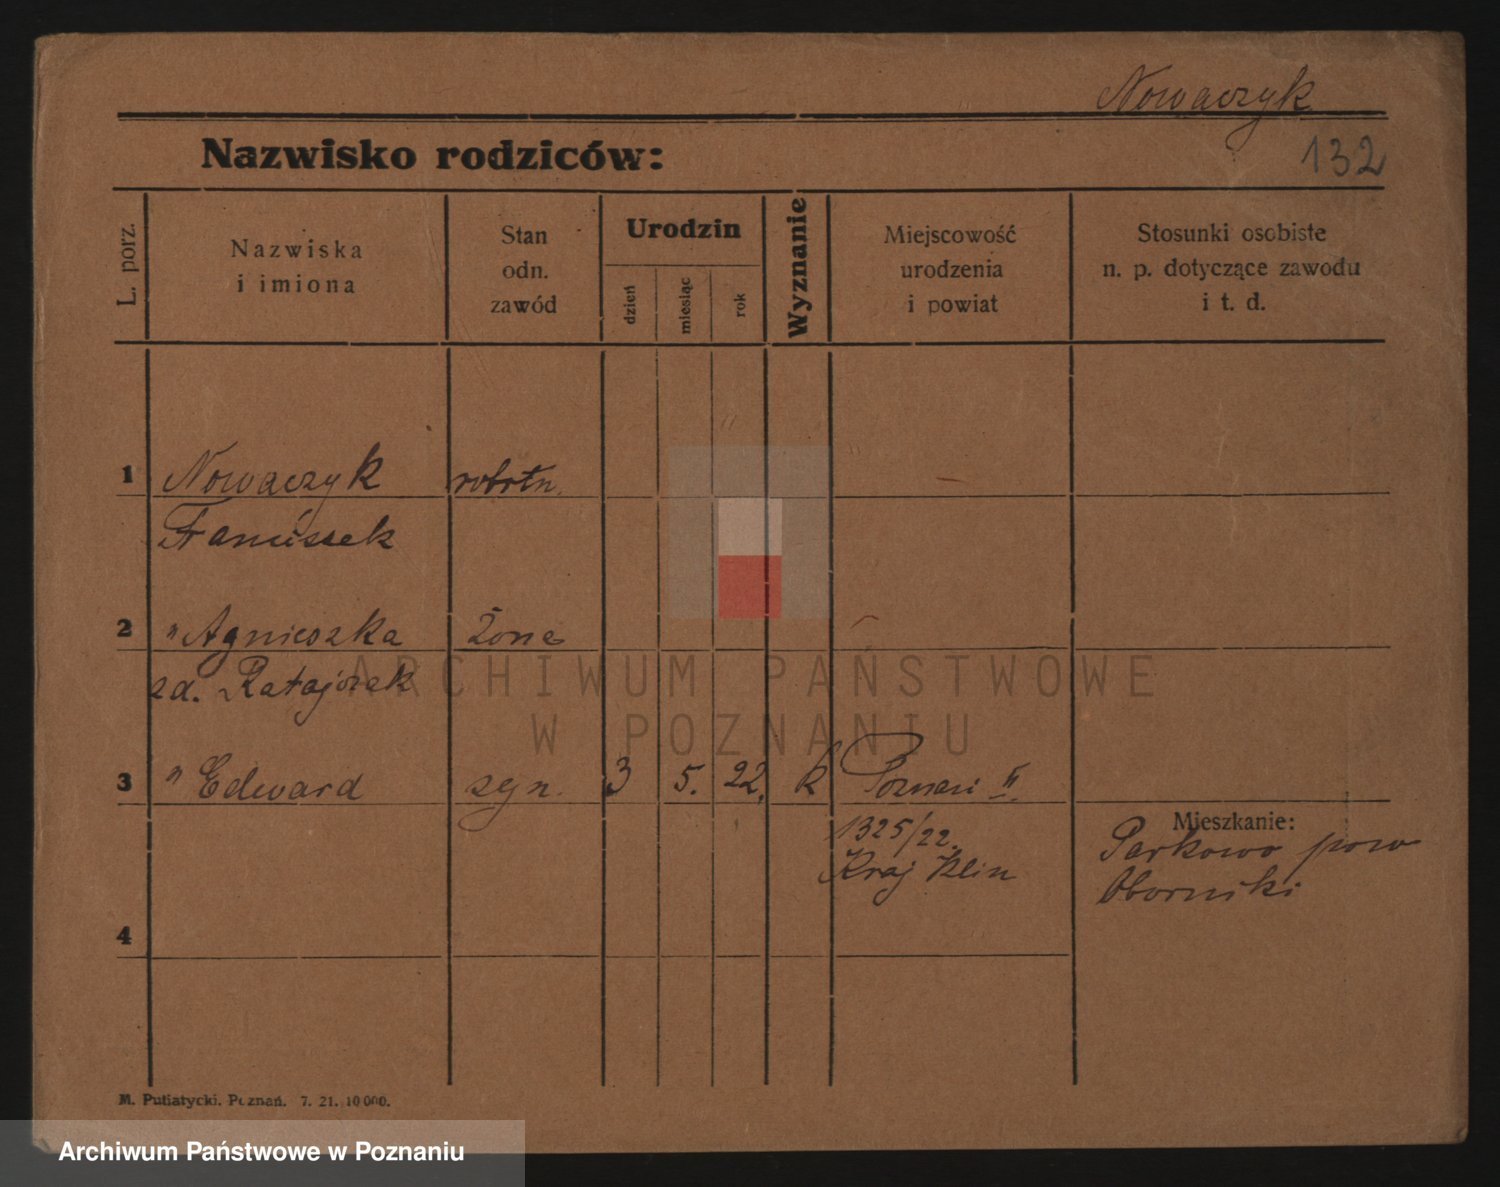 Nowaczyk
Nazwisko rodziców:
132
L. porz.
Nazwiska
i imiona
Stan
odn.
zawód
Urodzin
dzień
miesiąc
rok
Wyznanie
Miejscowość
urodzenia
i powiat
Stosunki osobiste
n. p. dotyczące zawodu
i t. d.
1 Nowaczyk robotn.
Franciszek
2 " Agnieszka żona
zd. Ratajczak
ARCHIWUM PAŃSTWOWE
W POZNANIU
3 " Edward syn. 3 5. 22. k Poznań II
1325/22.
Kraj Klin
Mieszkanie:
Parkowo pow
Oborniki
4
M. Putiatycki. Poznań. 7. 21. 10 000.
Archiwum Państwowe w Poznaniu